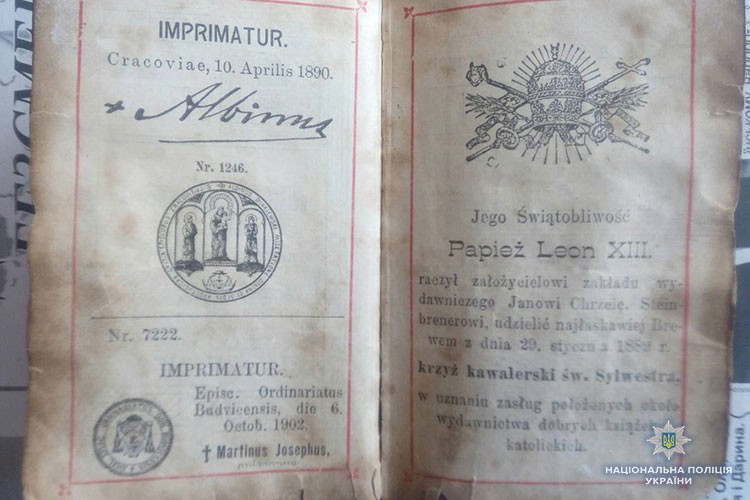 IMPRIMATUR.
Cracoviae, 10. Aprilis 1890.
+ Albinus
Nr. 1246.
Nr. 7222.
IMPRIMATUR.
Episc. Ordinariatus
Budvicensis, die 6.
Octob. 1902.
† Martinus Josephus,
Jego Świątobliwość
Papież Leon XIII.
raczył założycielowi zakładu wy-
dawniczego Janowi Chrzcic. Stein-
brenerowi, udzielić najłaskawiej Bre-
wem z dnia 29. stycznia 1889 r.
krzyż kawalerski św. Sylwestra,
w uznaniu zasług położonych około
wydawnictwa dobrych książek
katolickich.
НАЦІОНАЛЬНА ПОЛІЦІЯ
УКРАЇНИ
і Дарина.